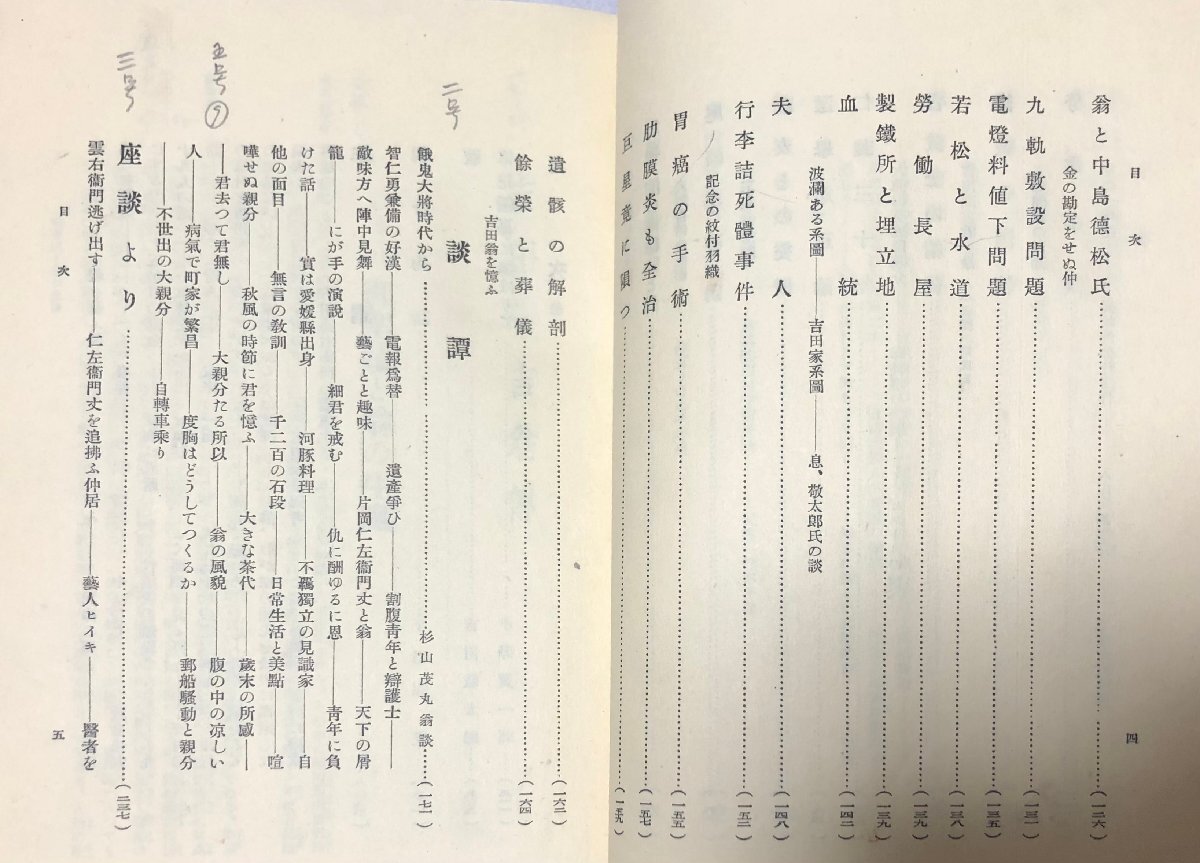 目次
四
翁と中島德松氏……(一二六)
金の勘定をせぬ仲
九軌敷設問題……(一三一)
電燈料値下問題……(一三五)
若松と水道……(一三八)
勞働長屋……(一三九)
製鐵所と埋立地……(一三九)
血統……(一四二)
波瀾ある系圖――吉田家系圖――息、敬太郎氏の談
夫人……(一四八)
行李詰死體事件……(一五二)
記念の紋付羽織
胃癌の手術……(一五五)
肋膜炎も全治……(一五七)
巨星竟に隕つ……(一五九)
遺骸の大解剖……(一六二)
餘榮と葬儀……(一六四)
談譚
吉田翁を憶ふ
二号
餓鬼大將時代から……杉山茂丸翁談……(一七一)
智仁勇兼備の好漢――電報爲替――遺產爭ひ――割腹靑年と辯護士――
敵味方へ陣中見舞――藝ごとと趣味――片岡仁左衞門丈と翁――天下の屑
籠――にが手の演說――細君を戒む――仇に酬ゆるに恩――靑年に負
けた話――實は愛媛縣出身――河豚料理――不羈獨立の見識家――自
他の面目――無言の敎訓――千二百の石段――日常生活と美點――喧
嘩せぬ親分――秋風の時節に君を憶ふ――大きな茶代――歲末の所感――
五号
9
――君去つて君無し――大親分たる所以――翁の風貌――腹の中の凉しい
人――病氣で町家が繁昌――度胸はどうしてつくるか――郵船騷動と親分
――不世出の大親分――自轉車乘り
三号
座談より……(二三七)
雲右衞門逃げ出す――仁左衞門丈を追拂ふ仲居――藝人ヒイキ――醫者を
目次
五